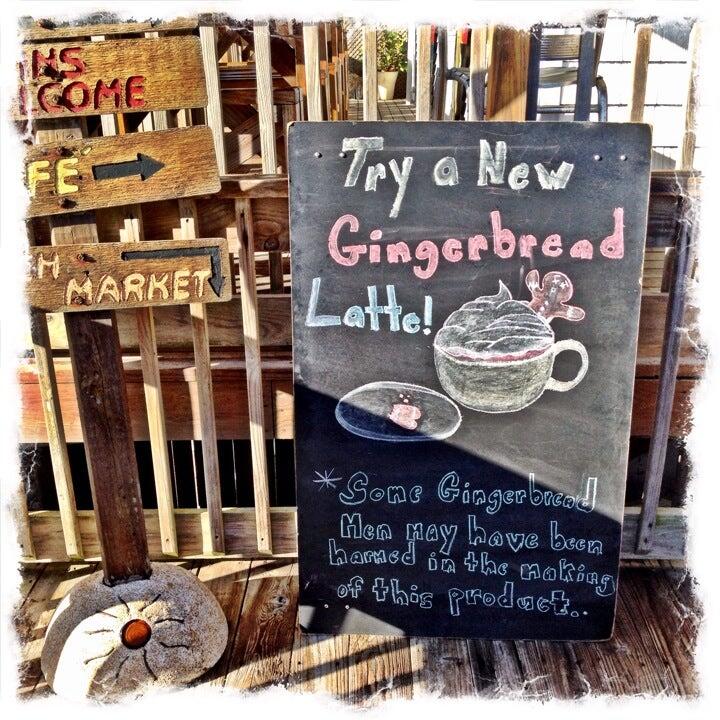 NS
COME
FÉ
H
MARKET
Try a New
Gingerbread
Latte!
*Some Gingerbread
Men May have been
harmed in the making
of this product.